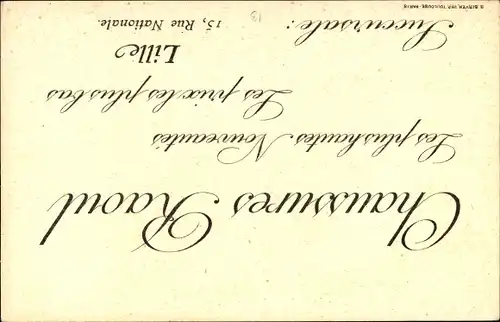 Chaussures Raoul
Les plus hautes Nouveautés
Les prix les plus bas
Succursale:
Lille
15, Rue Nationale.
13